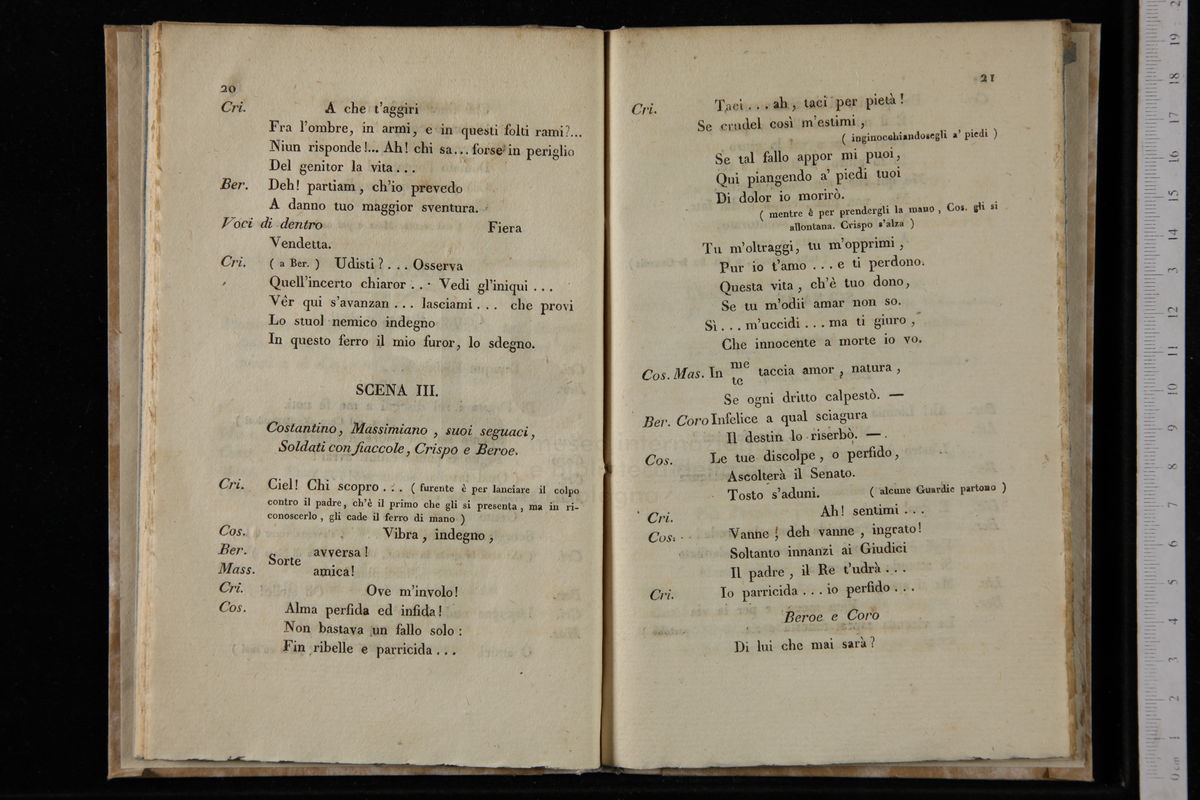 20
Cri. A che t'aggiri
Fra l'ombre, in armi, e in questi folti rami?...
Niun risponde!... Ah! chi sa... forse in periglio
Del genitor la vita...
Ber. Deh! partiam, ch'io prevedo
A danno tuo maggior sventura.
Voci di dentro Fiera
Vendetta.
Cri. ( a Ber. ) Udisti?... Osserva
Quell'incerto chiaror... Vedi gl'iniqui...
Vér qui s'avanzan... lasciami... che provi
Lo stuol nemico indegno
In questo ferro il mio furor, lo sdegno.
SCENA III.
Costantino, Massimiano, suoi seguaci,
Soldati con fiaccole, Crispo e Beroe.
Cri. Ciel! Chi scopro... ( furente è per lanciare il colpo
contro il padre, ch'è il primo che gli si presenta, ma in ri-
conoscerlo, gli cade il ferro di mano )
Cos. Vibra, indegno,
Ber. avversa!
Sorte
Mass. amica!
Cri. Ove m'involo!
Cos. Alma perfida ed infida!
Non bastava un fallo solo:
Fin ribelle e parricida...
21
Cri. Taci... ah, taci per pietà!
Se crudel così m'estimi,
( inginocchiandosegli a' piedi )
Se tal fallo appor mi puoi,
Qui piangendo a' piedi tuoi
Di dolor io morirò.
( mentre è per prendergli la mano, Cos. gli si
allontana. Crispo s'alza )
Tu m'oltraggi, tu m'opprimi,
Pur io t'amo... e ti perdono.
Questa vita, ch'è tuo dono,
Se tu m'odii amar non so.
Sì... m'uccidi... ma ti giuro,
Che innocente a morte io vo.
Cos. Mas. In me taccia amor, natura,
te
Se ogni dritto calpestò. —
Ber. Coro Infelice a qual sciagura
Il destin lo riserbò. —.
Cos. Le tue discolpe, o perfido,
Ascolterà il Senato.
Tosto s'aduni. ( alcune Guardie partono )
Cri. Ah! sentimi...
Cos. Vanne, deh vanne, ingrato!
Soltanto innanzi ai Giudici
Il padre, il Re t'udrà...
Cri. Io parricida... io perfido...
Beroe e Coro
Di lui che mai sarà?